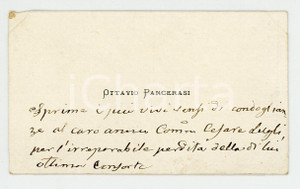 OTTAVIO PANCERASI
esprime i più vivi sensi di condoglian
ze al caro amico Comm Cesare
per l'irreparabile perdita della di lui
ottima Consorte